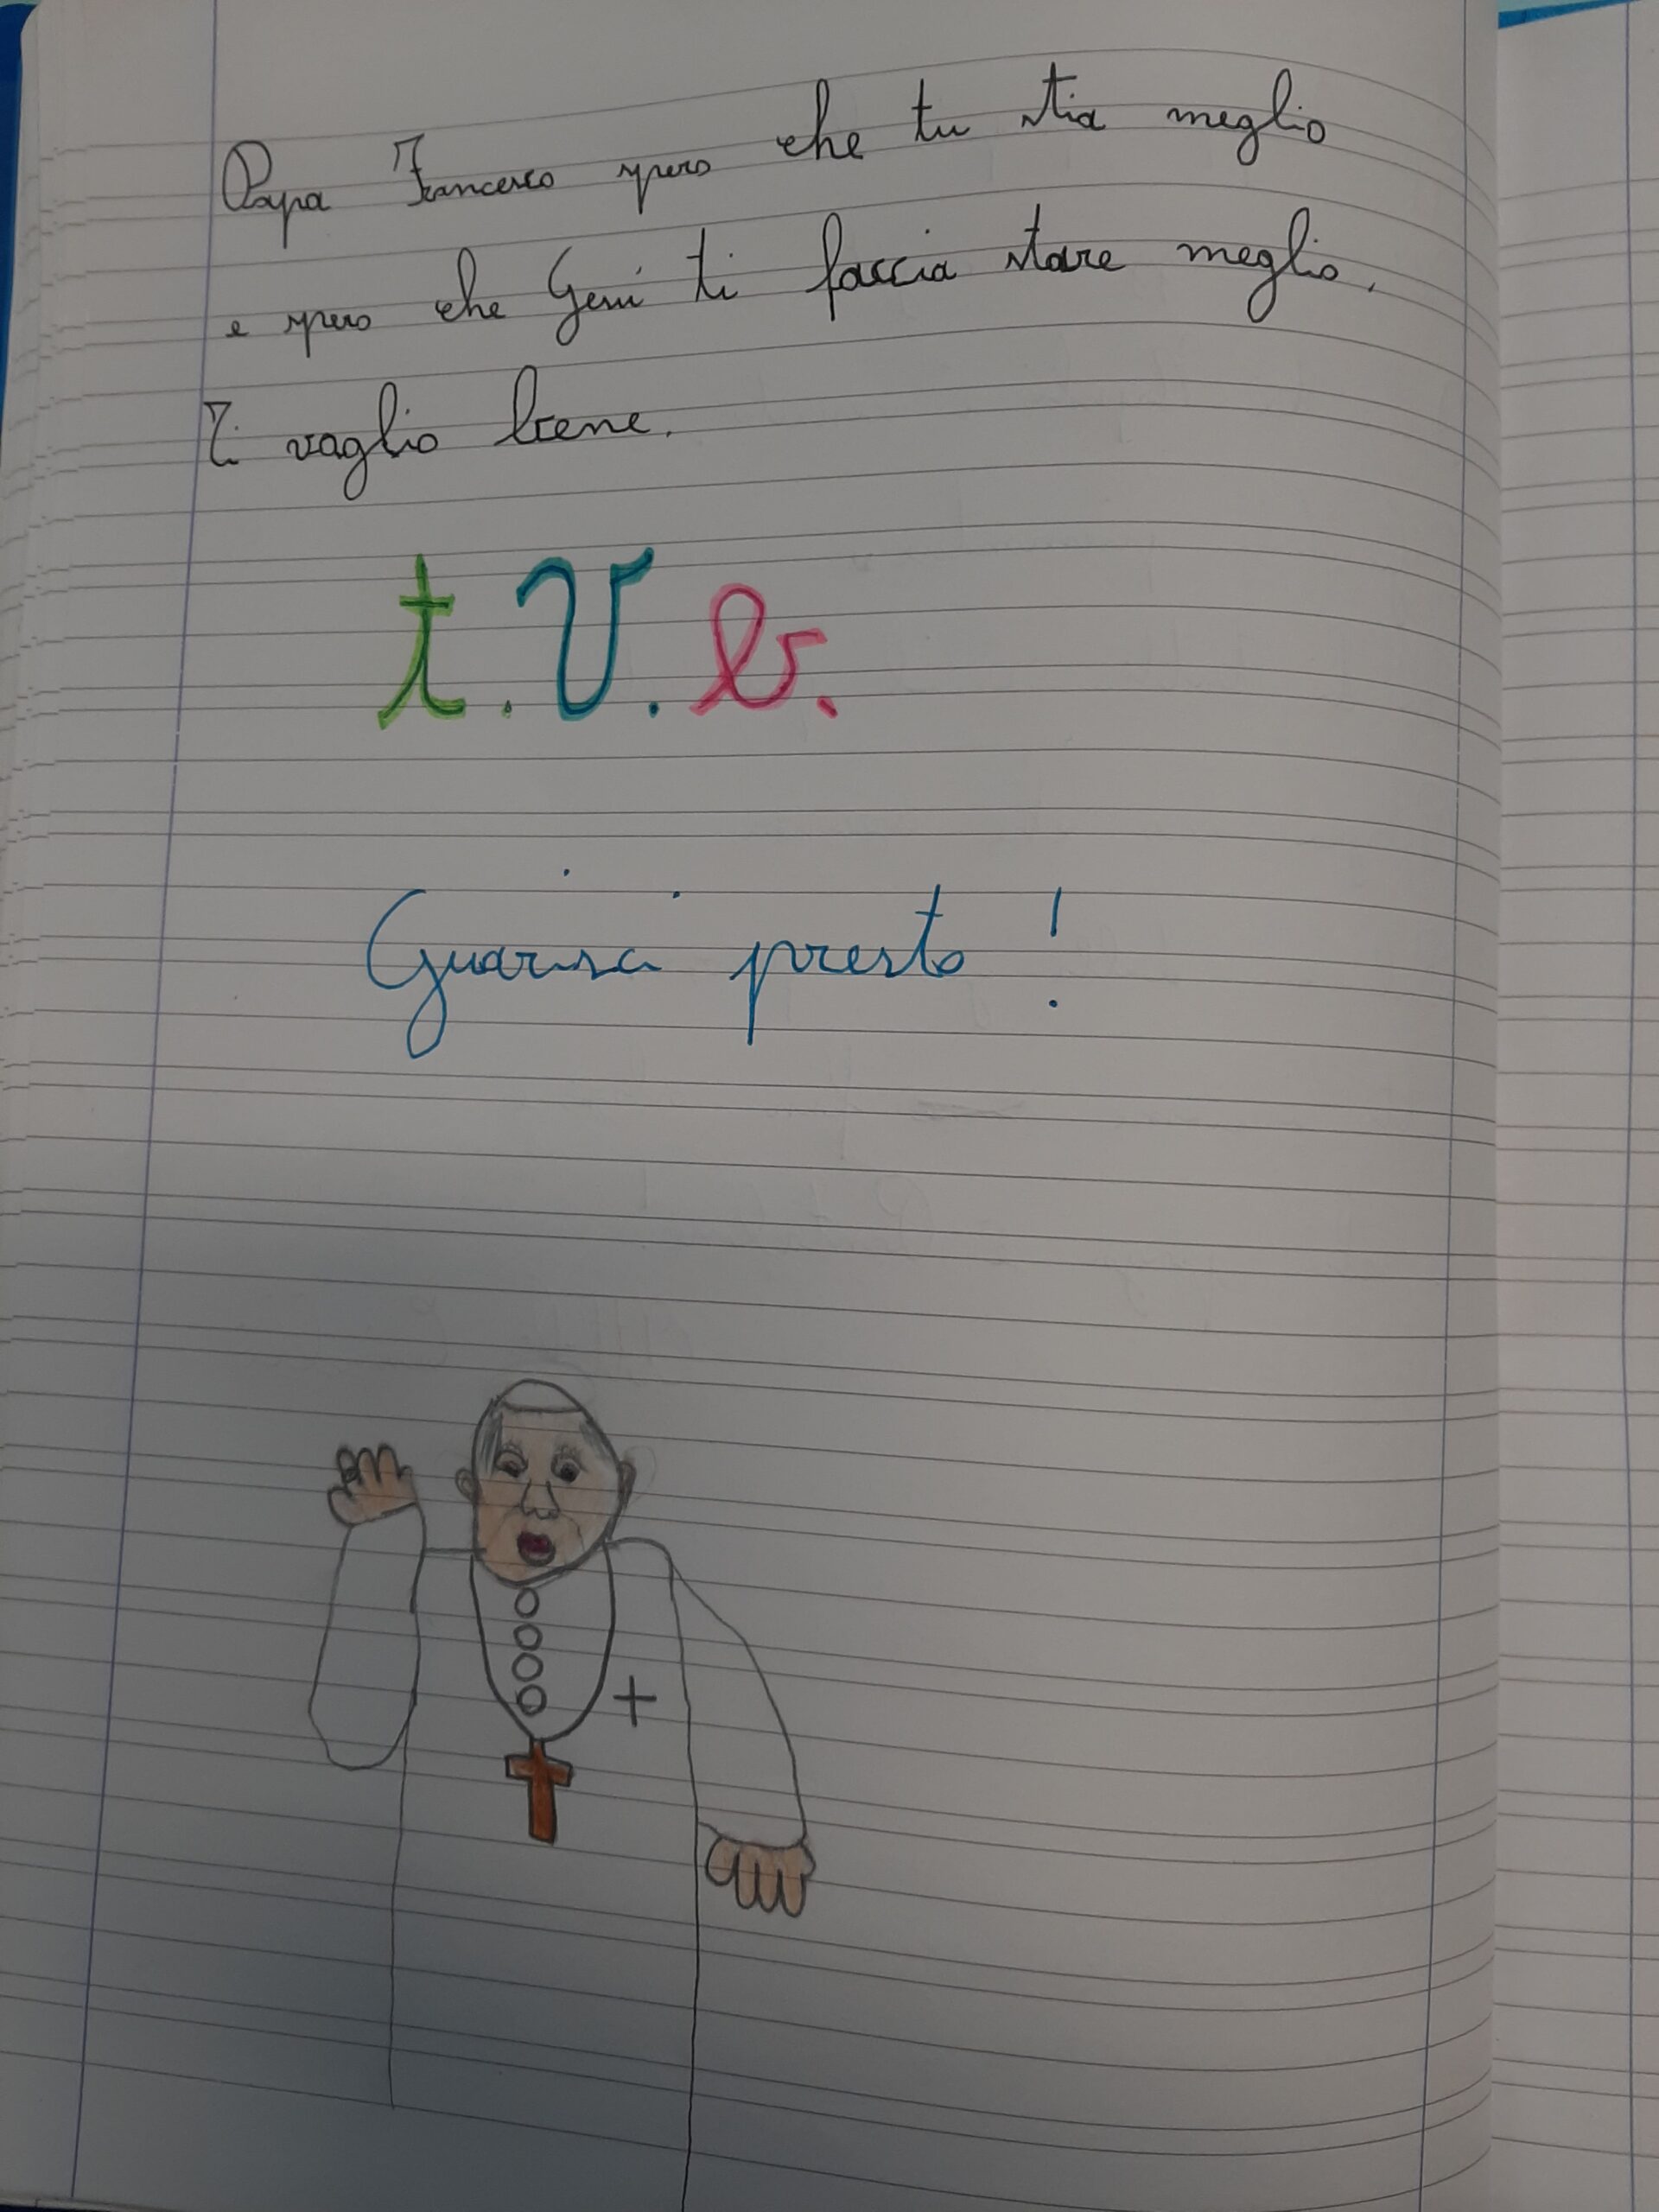 Papa Francesco spero che tu stia meglio
e spero che Gesù ti faccia stare meglio.
Ti voglio bene.
t.V.b.
Guarisci presto!